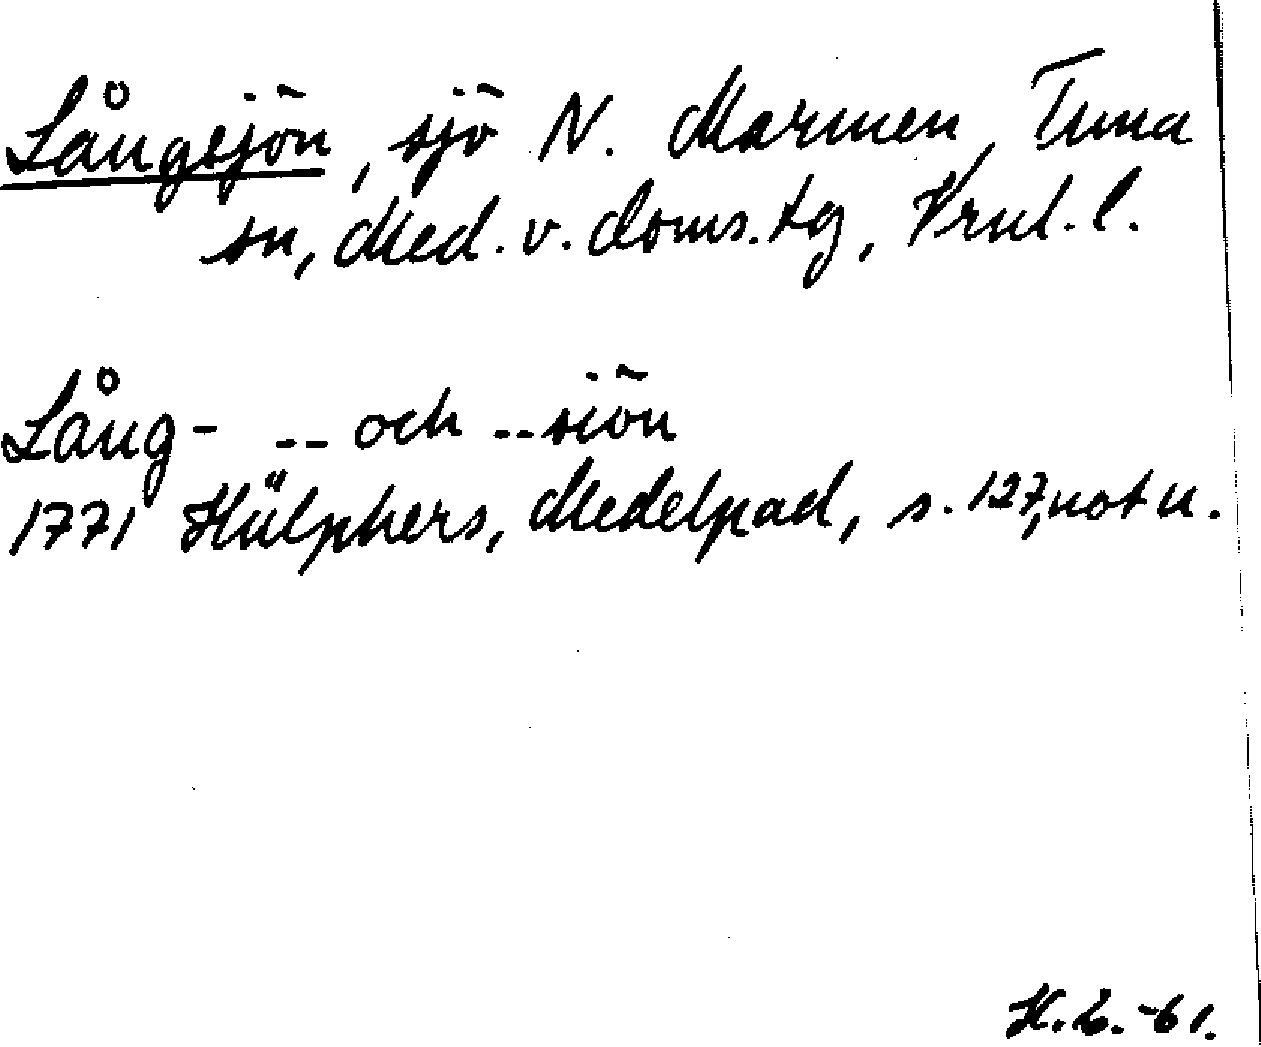 Långsjön, sjö N. Marmen, Tuna
sn, Med. v. doms.tg, Vrnl. l.
Lång- -- och --siön
1771 Hülphers, Medelpad, s. 127, not u.
H. L. -61.